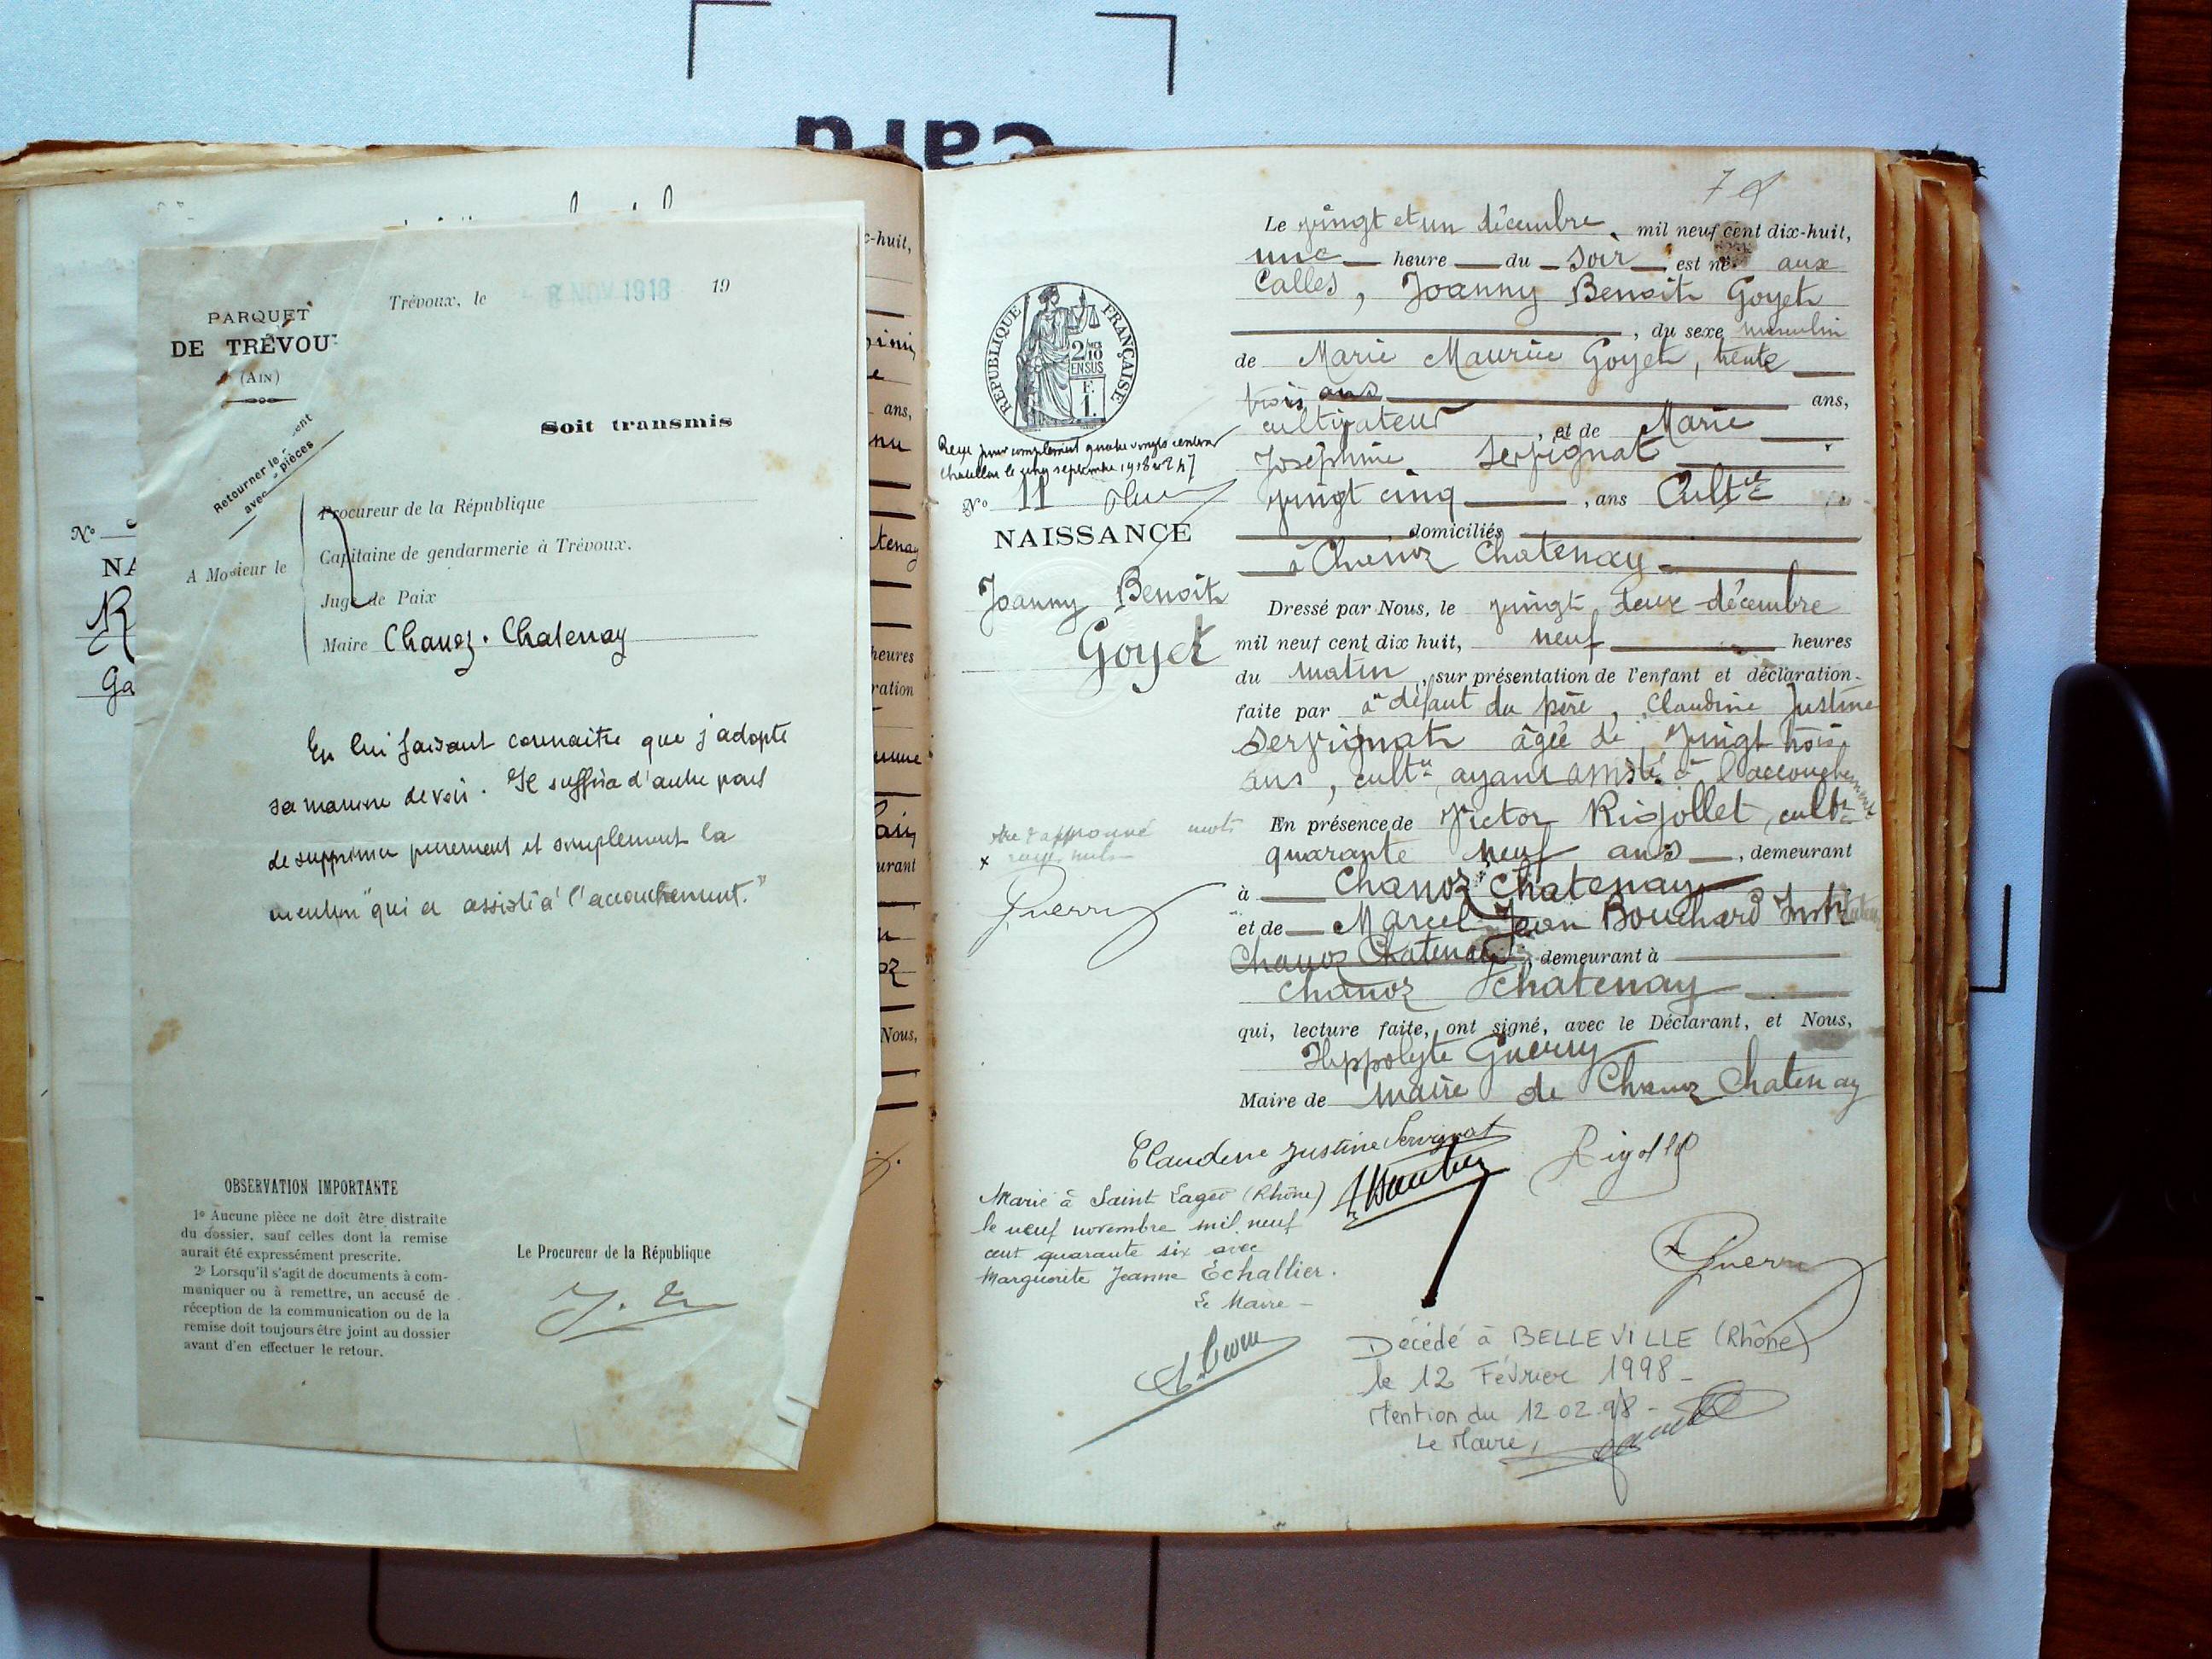 card
PARQUET
DE TRÉVOU
(AIN)
Trévoux, le 8 NOV 1918 19
Soit transmis
Retourner le
avec pièces
A Monsieur le
Procureur de la République
Capitaine de gendarmerie à Trévoux.
Juge de Paix
Maire Chanoz-Chatenay
En lui faisant connaitre que j'adopte
sa manière de voir. Il suffira d'autre part
de supprimer purement et simplement la
mention "qui a assisté à l'accouchement."
OBSERVATION IMPORTANTE
1º Aucune pièce ne doit être distraite
du dossier, sauf celles dont la remise
aurait été expressément prescrite.
2º Lorsqu'il s'agit de documents à com-
muniquer ou à remettre, un accusé de
réception de la communication ou de la
remise doit toujours être joint au dossier
avant d'en effectuer le retour.
Le Procureur de la République
Nº
NA
R
Ga
c-huit,
ans,
tenay
heures
ration
urant
Nous,
Le vingt et un décembre mil neuf cent dix-huit,
une heure du soir est né aux
Calles, Joanny Benoit Goyet
, du sexe masculin
de Marie Maurice Goyet, trente
trois ans ans,
cultivateur, et de Marie
Joséphine Servignat
vingt cinq, ans Cult
domiciliés
à Chanoz Chatenay
Dressé par Nous, le vingt deux décembre
mil neuf cent dix huit, neuf heures
du matin, sur présentation de l'enfant et déclaration
faite par à défaut du père, Claudine Justine
Servignat âgée de vingt trois
ans, cult ayant assisté à l'accouchement
En présence de Victor Rigollet, cult
quarante neuf ans, demeurant
à Chanoz Chatenay
et de Marcel Jean Bouchard Instituteur
Chanoz Chatenay, demeurant à
Chanoz Chatenay
qui, lecture faite, ont signé, avec le Déclarant, et Nous,
Hippolyte Guerry
Maire de maire de Chanoz Chatenay
RÉPUBLIQUE FRANÇAISE
2/10
EN SUS
F.
1.
Reçu pour complément quatre vingts centimes
Chatillon le cinq septembre 1918
Nº 11
NAISSANCE
Joanny Benoit
Goyet
Guerry
Claudine Justine Servignat
Rigollet
Guerry
Marié à Saint Lager (Rhône)
le neuf novembre mil neuf
cent quarante six avec
Marguerite Jeanne Echallier.
Le Maire -
Décédé à BELLEVILLE (Rhône)
le 12 Février 1998 -
Mention du 12 02.98 -
Le Maire,